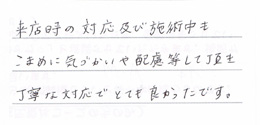 来店時の対応及び施術中も
こまめに気づかいや配慮等して頂き
丁寧な対応でとても良かったです。